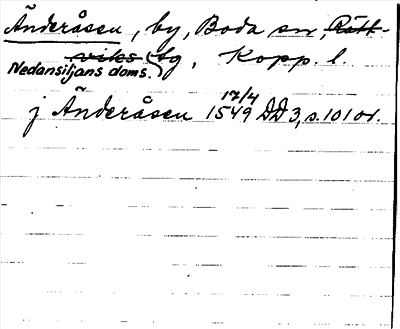 Änderåsen, by, Boda sn, Rätt-
viks tg, Kopp. l.
Nedansiljans doms.
j Änderåsen 1549 17/4 DD 3, s. 101 or.